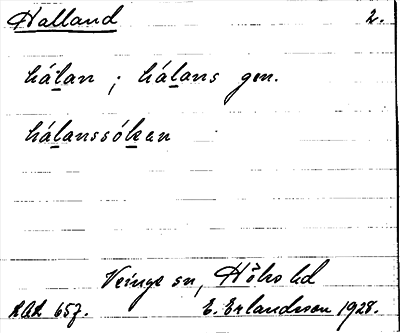 Halland 2.
hálan ; hálans gen.
hálanssóken
Veinge sn, Höks hd
AAA 657. E. Erlandsson 1928.